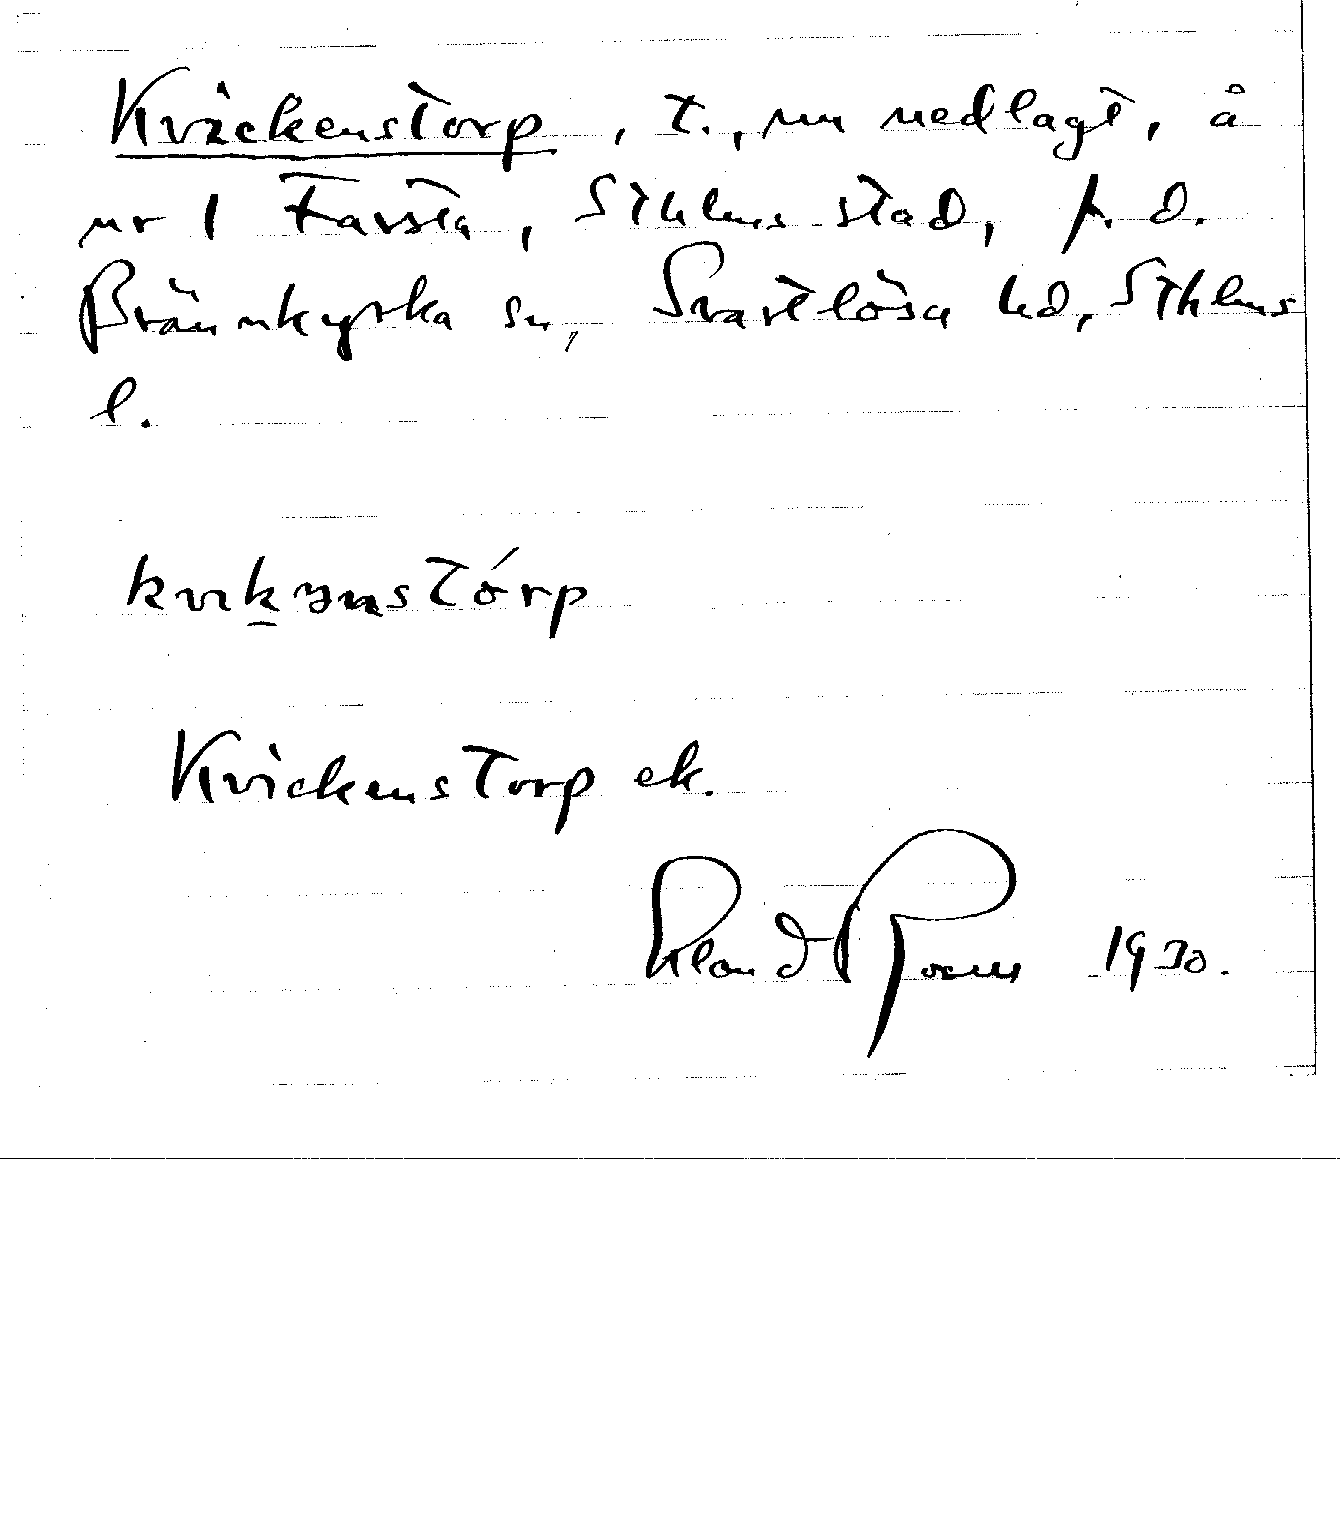 Kvickenstorp, t., nu nedlagt, å
nr 1 Farsta, Sthlms stad, f. d.
Brännkyrka sn, Svartlösa hd, Sthlms
l.
kvikənstórp
Kvickenstorp ek.
1930.